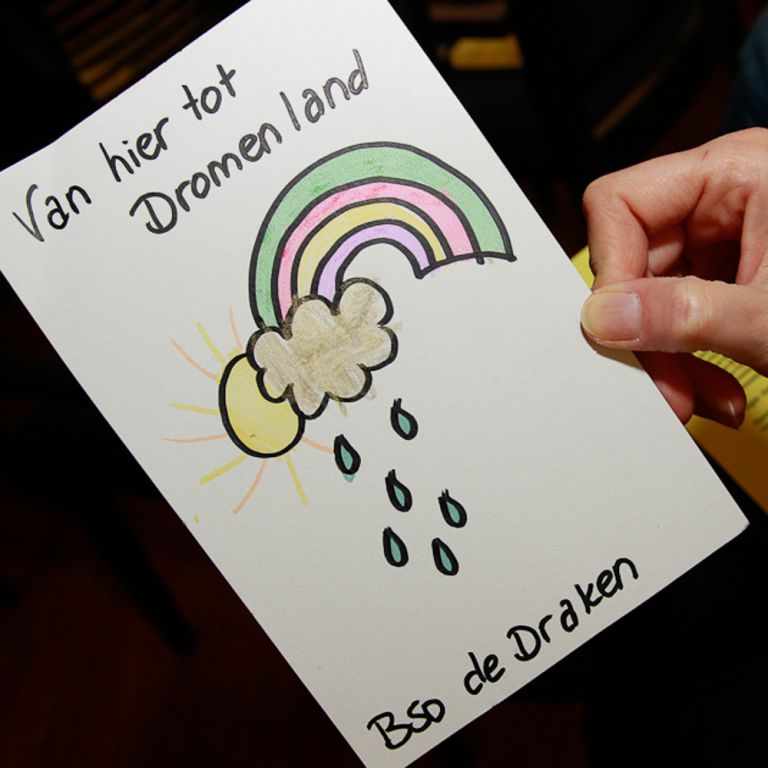 Van hier tot
Dromenland
Bso de Draken